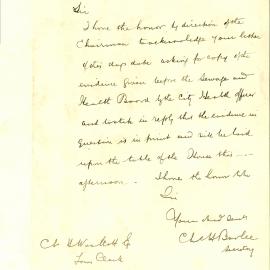 Sir
I have the honor by direction of the
Chairman to acknowledge your letter
of this days date asking for copy of the
evidence given before the Sewage and
Health Board by the City Health officer
and to state in reply that the evidence in
question is in print and will be laid
upon the table of the House this
afternoon. I have the honor to be
Sir
Your obed Servt
Secretary
Town Clerk